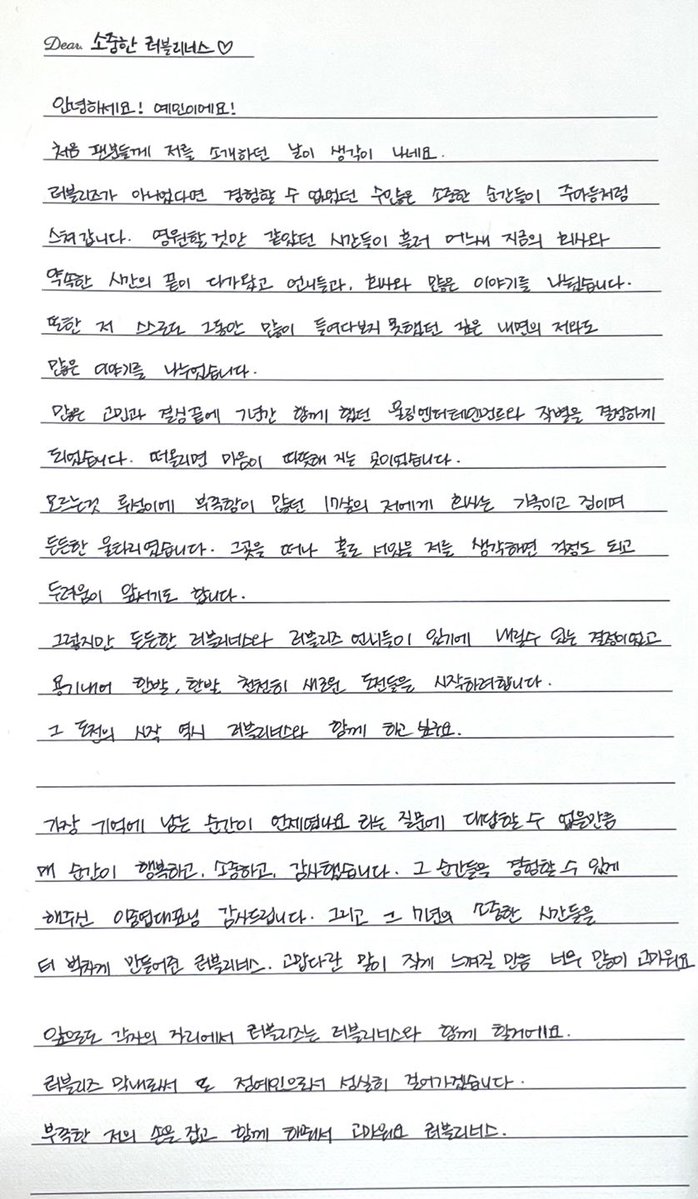 Dear. 소중한 러블리너스♡
안녕하세요! 예인이에요!
처음 팬분들께 저를 소개하던 날이 생각이 나네요.
러블리즈가 아니었다면 경험할 수 없었던 수많은 소중한 순간들이 주마등처럼
스쳐갑니다. 영원할 것만 같았던 시간들이 흘러 어느새 지금의 회사와
약속한 시간의 끝이 다가왔고 언니들과, 회사와 많은 이야기를 나눴습니다.
또한 저 스스로도 그동안 많이 들여다보지 못했던 깊은 내면의 저와도
많은 이야기를 나누었습니다.
많은 고민과 결심끝에 7년간 함께 했던 울림엔터테인먼트와 작별을 결정하게
되었습니다. 떠올리면 마음이 따뜻해 지는 곳이었습니다.
모르는것 투성이에 부족함이 많던 17살의 저에게 회사는 가족이고 집이며
든든한 울타리였습니다. 그곳을 떠나 홀로 서있을 저를 생각하면 걱정도 되고
두려움이 앞서기도 합니다.
그렇지만 든든한 러블리너스와 러블리즈 언니들이 있기에 내릴수 있는 결정이었고
용기내어 한발, 한발 천천히 새로운 도전들을 시작하려합니다.
그 도전의 시작 역시 러블리너스와 함께 하고 싶어요.
가장 기억에 남는 순간이 언제였나요 라는 질문에 대답할 수 없을만큼
매 순간이 행복하고, 소중하고, 감사했습니다. 그 순간들을 경험할 수 있게
해주신 이중엽대표님 감사드립니다. 그리고 그 7년의 소중한 시간들을
더 벅차게 만들어준 러블리너스. 고맙다란 말이 작게 느껴질 만큼 너무 많이 고마워요
앞으로도 각자의 자리에서 러블리즈는 러블리너스와 함께 할거에요.
러블리즈 막내로써 또 정예인으로서 성실히 걸어가겠습니다.
부족한 저의 손을 잡고 함께 해줘서 고마워요 러블리너스.